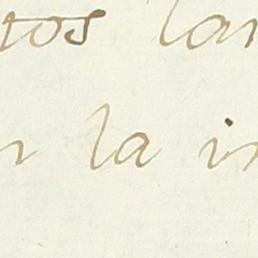 tos lar
n la in